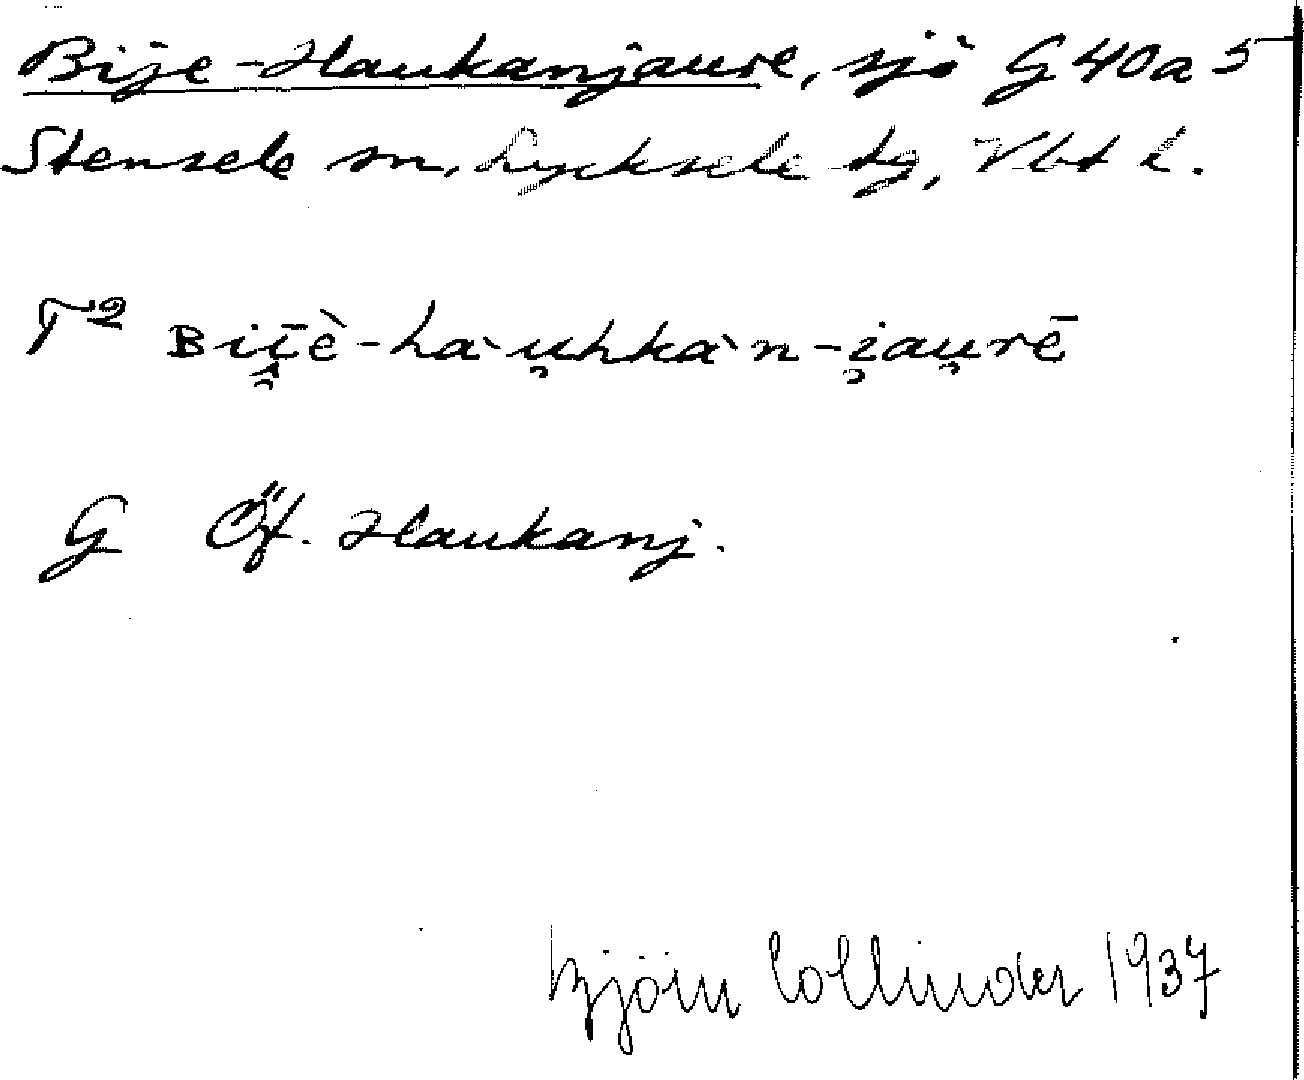 Bije-Haukanjaure, sjö G 40 a 5
Stensele sn, Lycksele tg, Vbt l.
T² ʙii̯ḕ-hàu̯hkàn-i̯au̯rē
G Öf. Haukanj.
Björn Collinder 1937